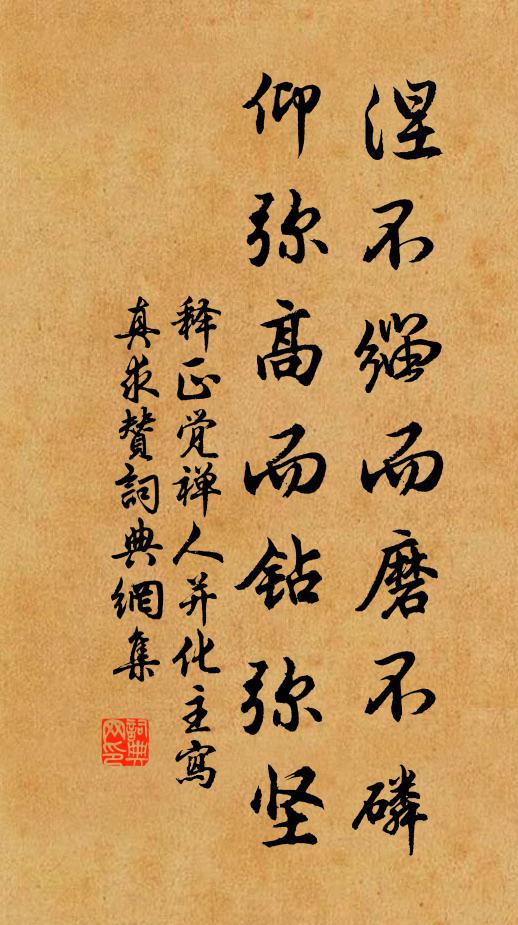 涅不缁而磨不磷
仰弥高而钻弥坚
释正觉禅人并化主寫
真求赞詞典網集
詞典网印